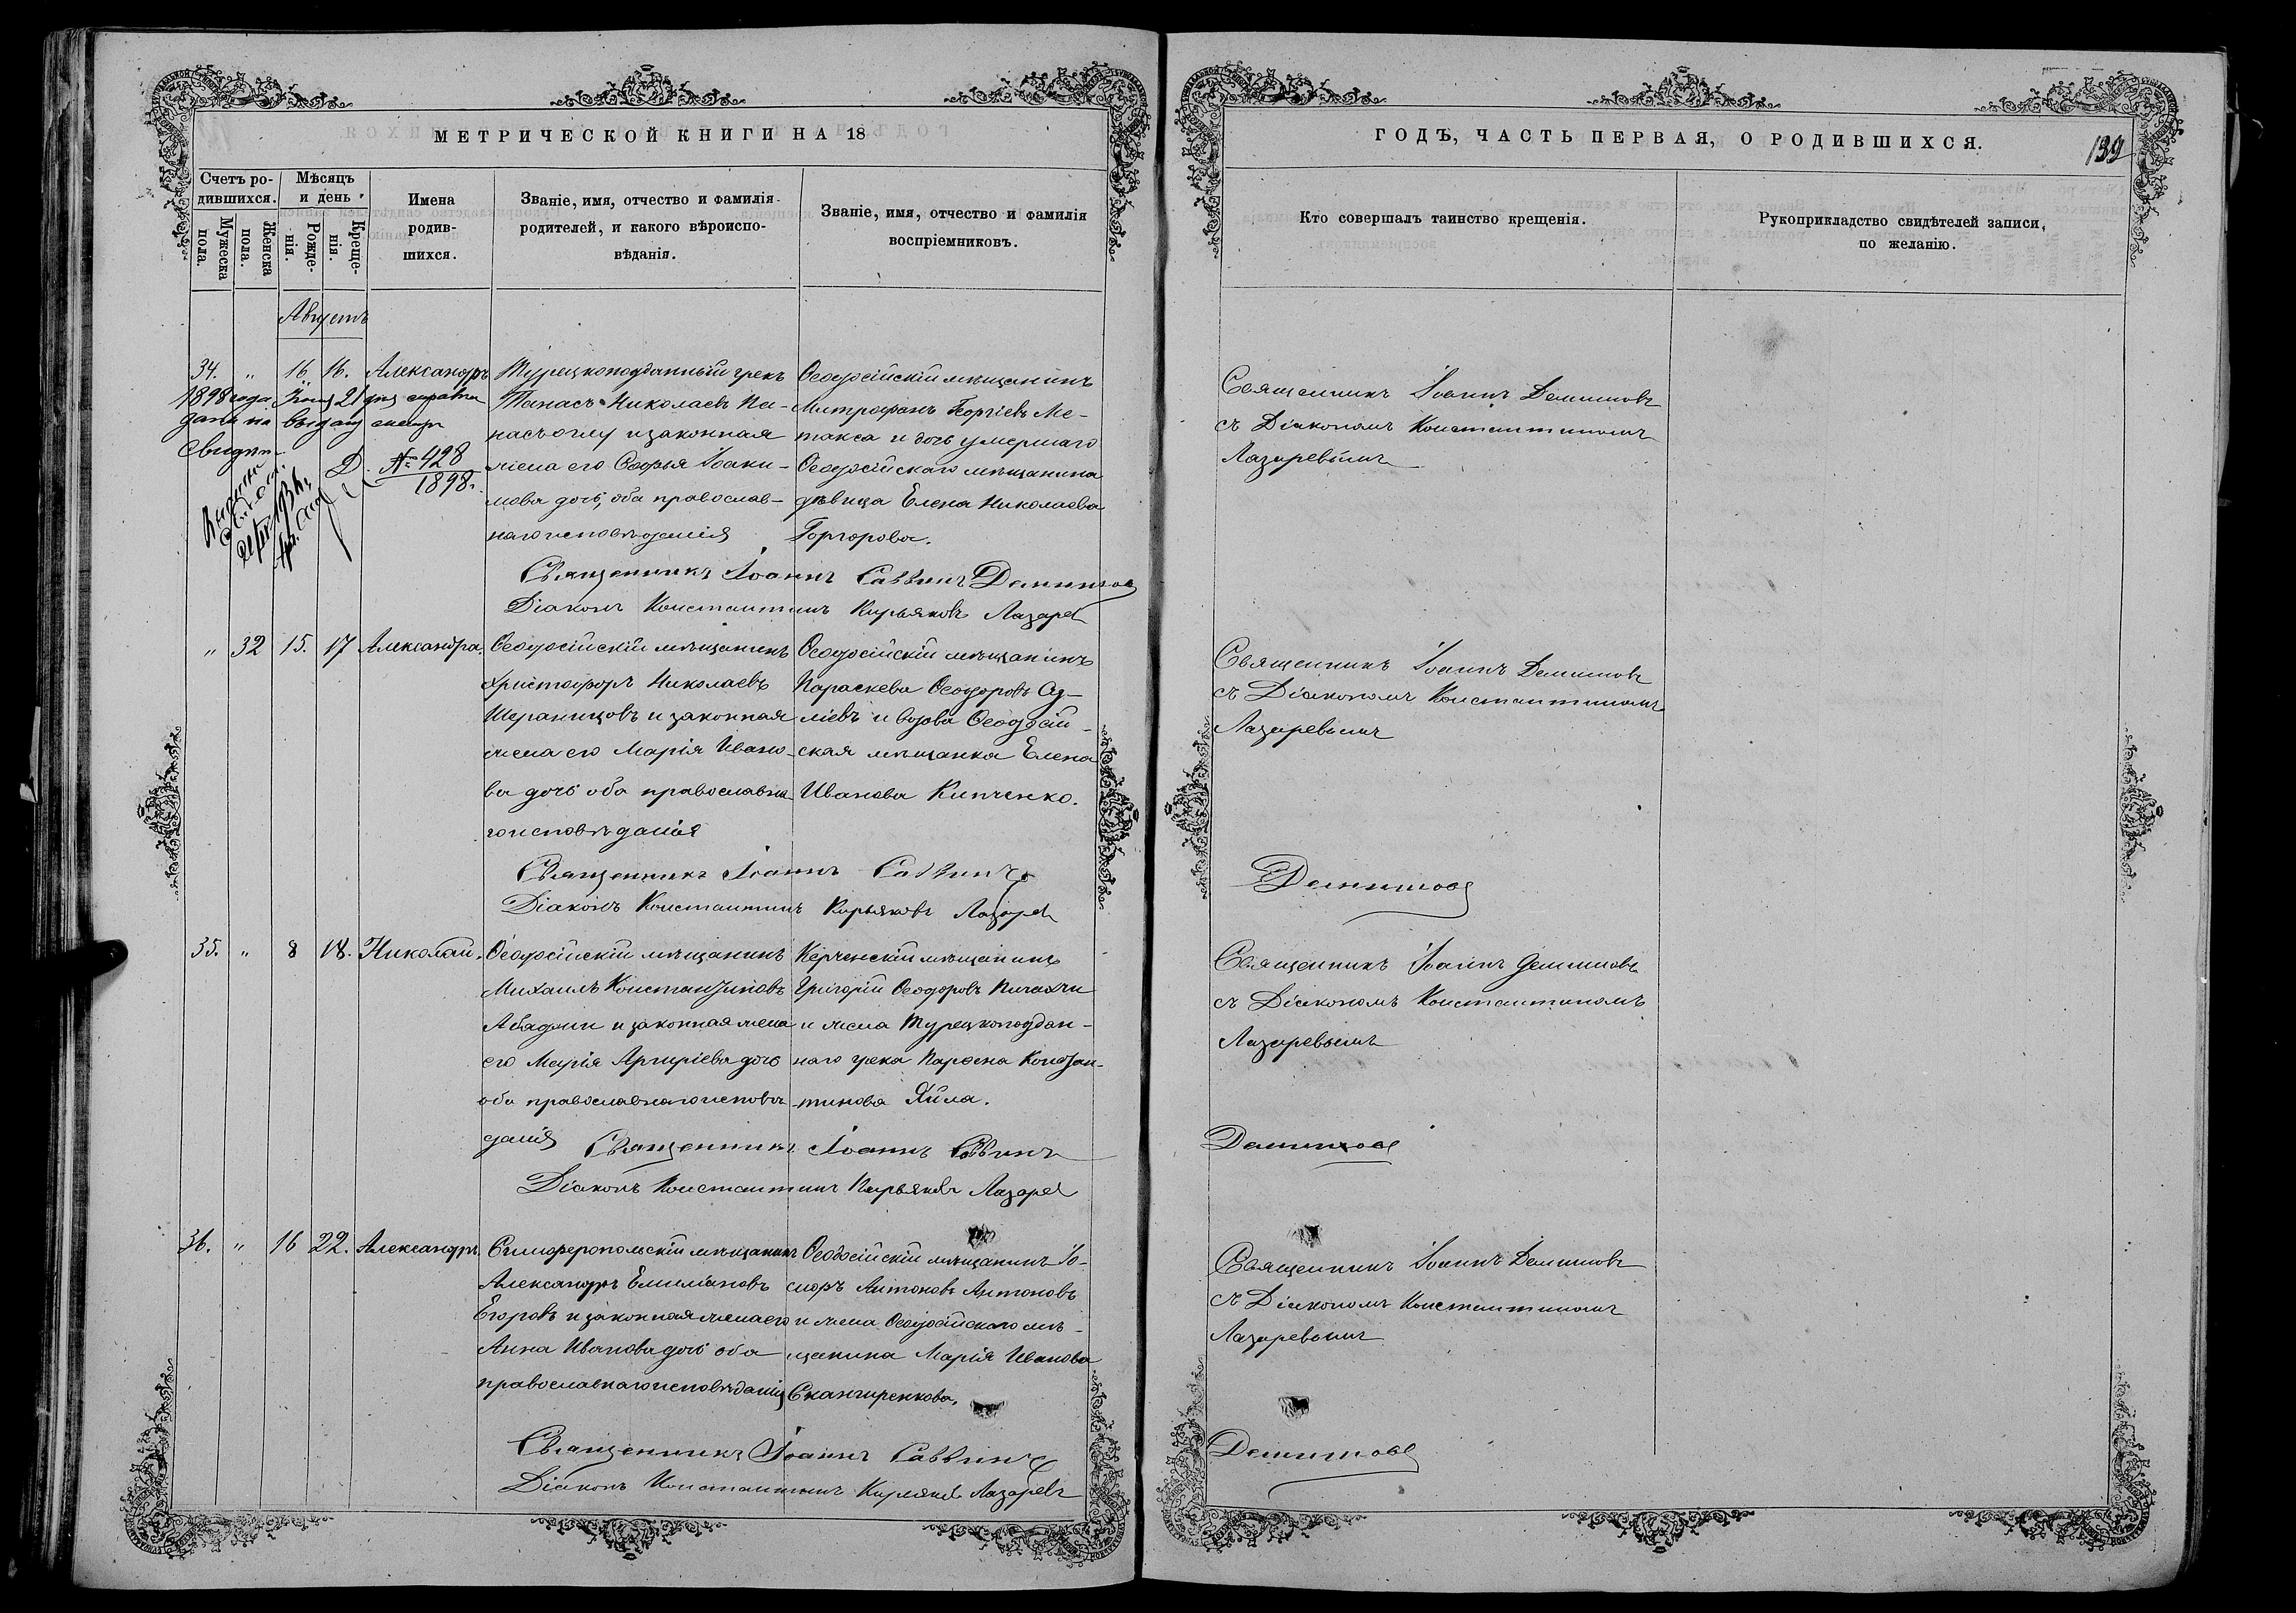 МЕТРИЧЕСКОЙ КНИГИ НА 18
Счетъ ро-
дившихся.
Мужеска
пола.
Женска
пола.
Мѣсяцъ
и день
Рожде-
нія.
Креще-
нія.
Имена
родив-
шихся.
Званіе, имя, отчество и фамилія
родителей, и какого вѣроиспо-
вѣданія.
Званіе, имя, отчество и фамилія
воспріемниковъ.
Августъ
34. " 16 16. Александръ
1898 года 21
дана на выдачу
Свидѣт-
Д. № 428
1898.
Турецкоподданный грекъ
Танасъ Николаевъ Па-
насъоглу и законная
жена его Софья Іоаки-
мова дочь, оба православ-
наго исповѣданія
Ѳеодосійскій мѣщанинъ
Митрофанъ Георгіевъ Ме-
такса и дочь умершаго
Ѳеодосійскаго мѣщанина
дѣвица Елена Николаева
Горгорова.
Священникъ Іоаннъ Саввинъ Демишовъ
Діаконъ Константинъ Кирьяковъ Лазаревъ
" 32 15. 17 Александра.
Ѳеодосійскій мѣщанинъ
Христофоръ Николаевъ
Шераницовъ и законная
жена его Марія Ивано-
ва дочь оба православна-
го исповѣданія
Ѳеодосійскій мѣщанинъ
Параскева Ѳеодоровъ
и вдова Ѳеодосій-
ская мѣщанка Елена
Иванова Кипченко.
Священникъ Іоаннъ Саввинъ
Діаконъ Константинъ Кирьяковъ Лазаревъ
35. " 8 18. Николай.
Ѳеодосійскій мѣщанинъ
Михаилъ Константиновъ
Абаджи и законная жена
его Марія Аргиріева дочь
оба православнаго исповѣ-
данія
Керченскій мѣщанинъ
Григорій Ѳеодоровъ Пичахчи
и жена Турецкоподдан-
наго грека Парѳена Констан-
тинова Яйла.
Священникъ Іоаннъ Саввинъ
Діаконъ Константинъ Кирьяковъ Лазаревъ
36. " 16 22. Александръ.
Симферопольскій мѣщанинъ
Александръ Емиліановъ
Егоровъ и законная жена его
Анна Иванова дочь оба
православнаго исповѣданія
Ѳеодосійскій мѣщанинъ Іо-
сифъ Антоновъ Антоновъ
и жена Ѳеодосійскаго мѣ-
щанина Марія Иванова
Скангиренкова.
Священникъ Іоаннъ Саввинъ
Діаконъ Константинъ Кирьяковъ Лазаревъ
ГОДЪ, ЧАСТЬ ПЕРВАЯ, О РОДИВШИХСЯ.
139
Кто совершалъ таинство крещенія.
Рукоприкладство свидѣтелей записи,
по желанію.
Священникъ Іоаннъ Демишовъ
съ Діакономъ Константиномъ
Лазаревымъ
Священникъ Іоаннъ Демишовъ
съ Діакономъ Константиномъ
Лазаревымъ
Демишовъ
Священникъ Іоаннъ Демишовъ
съ Діакономъ Константиномъ
Лазаревымъ
Демишовъ
Священникъ Іоаннъ Демишовъ
съ Діакономъ Константиномъ
Лазаревымъ
Демишовъ